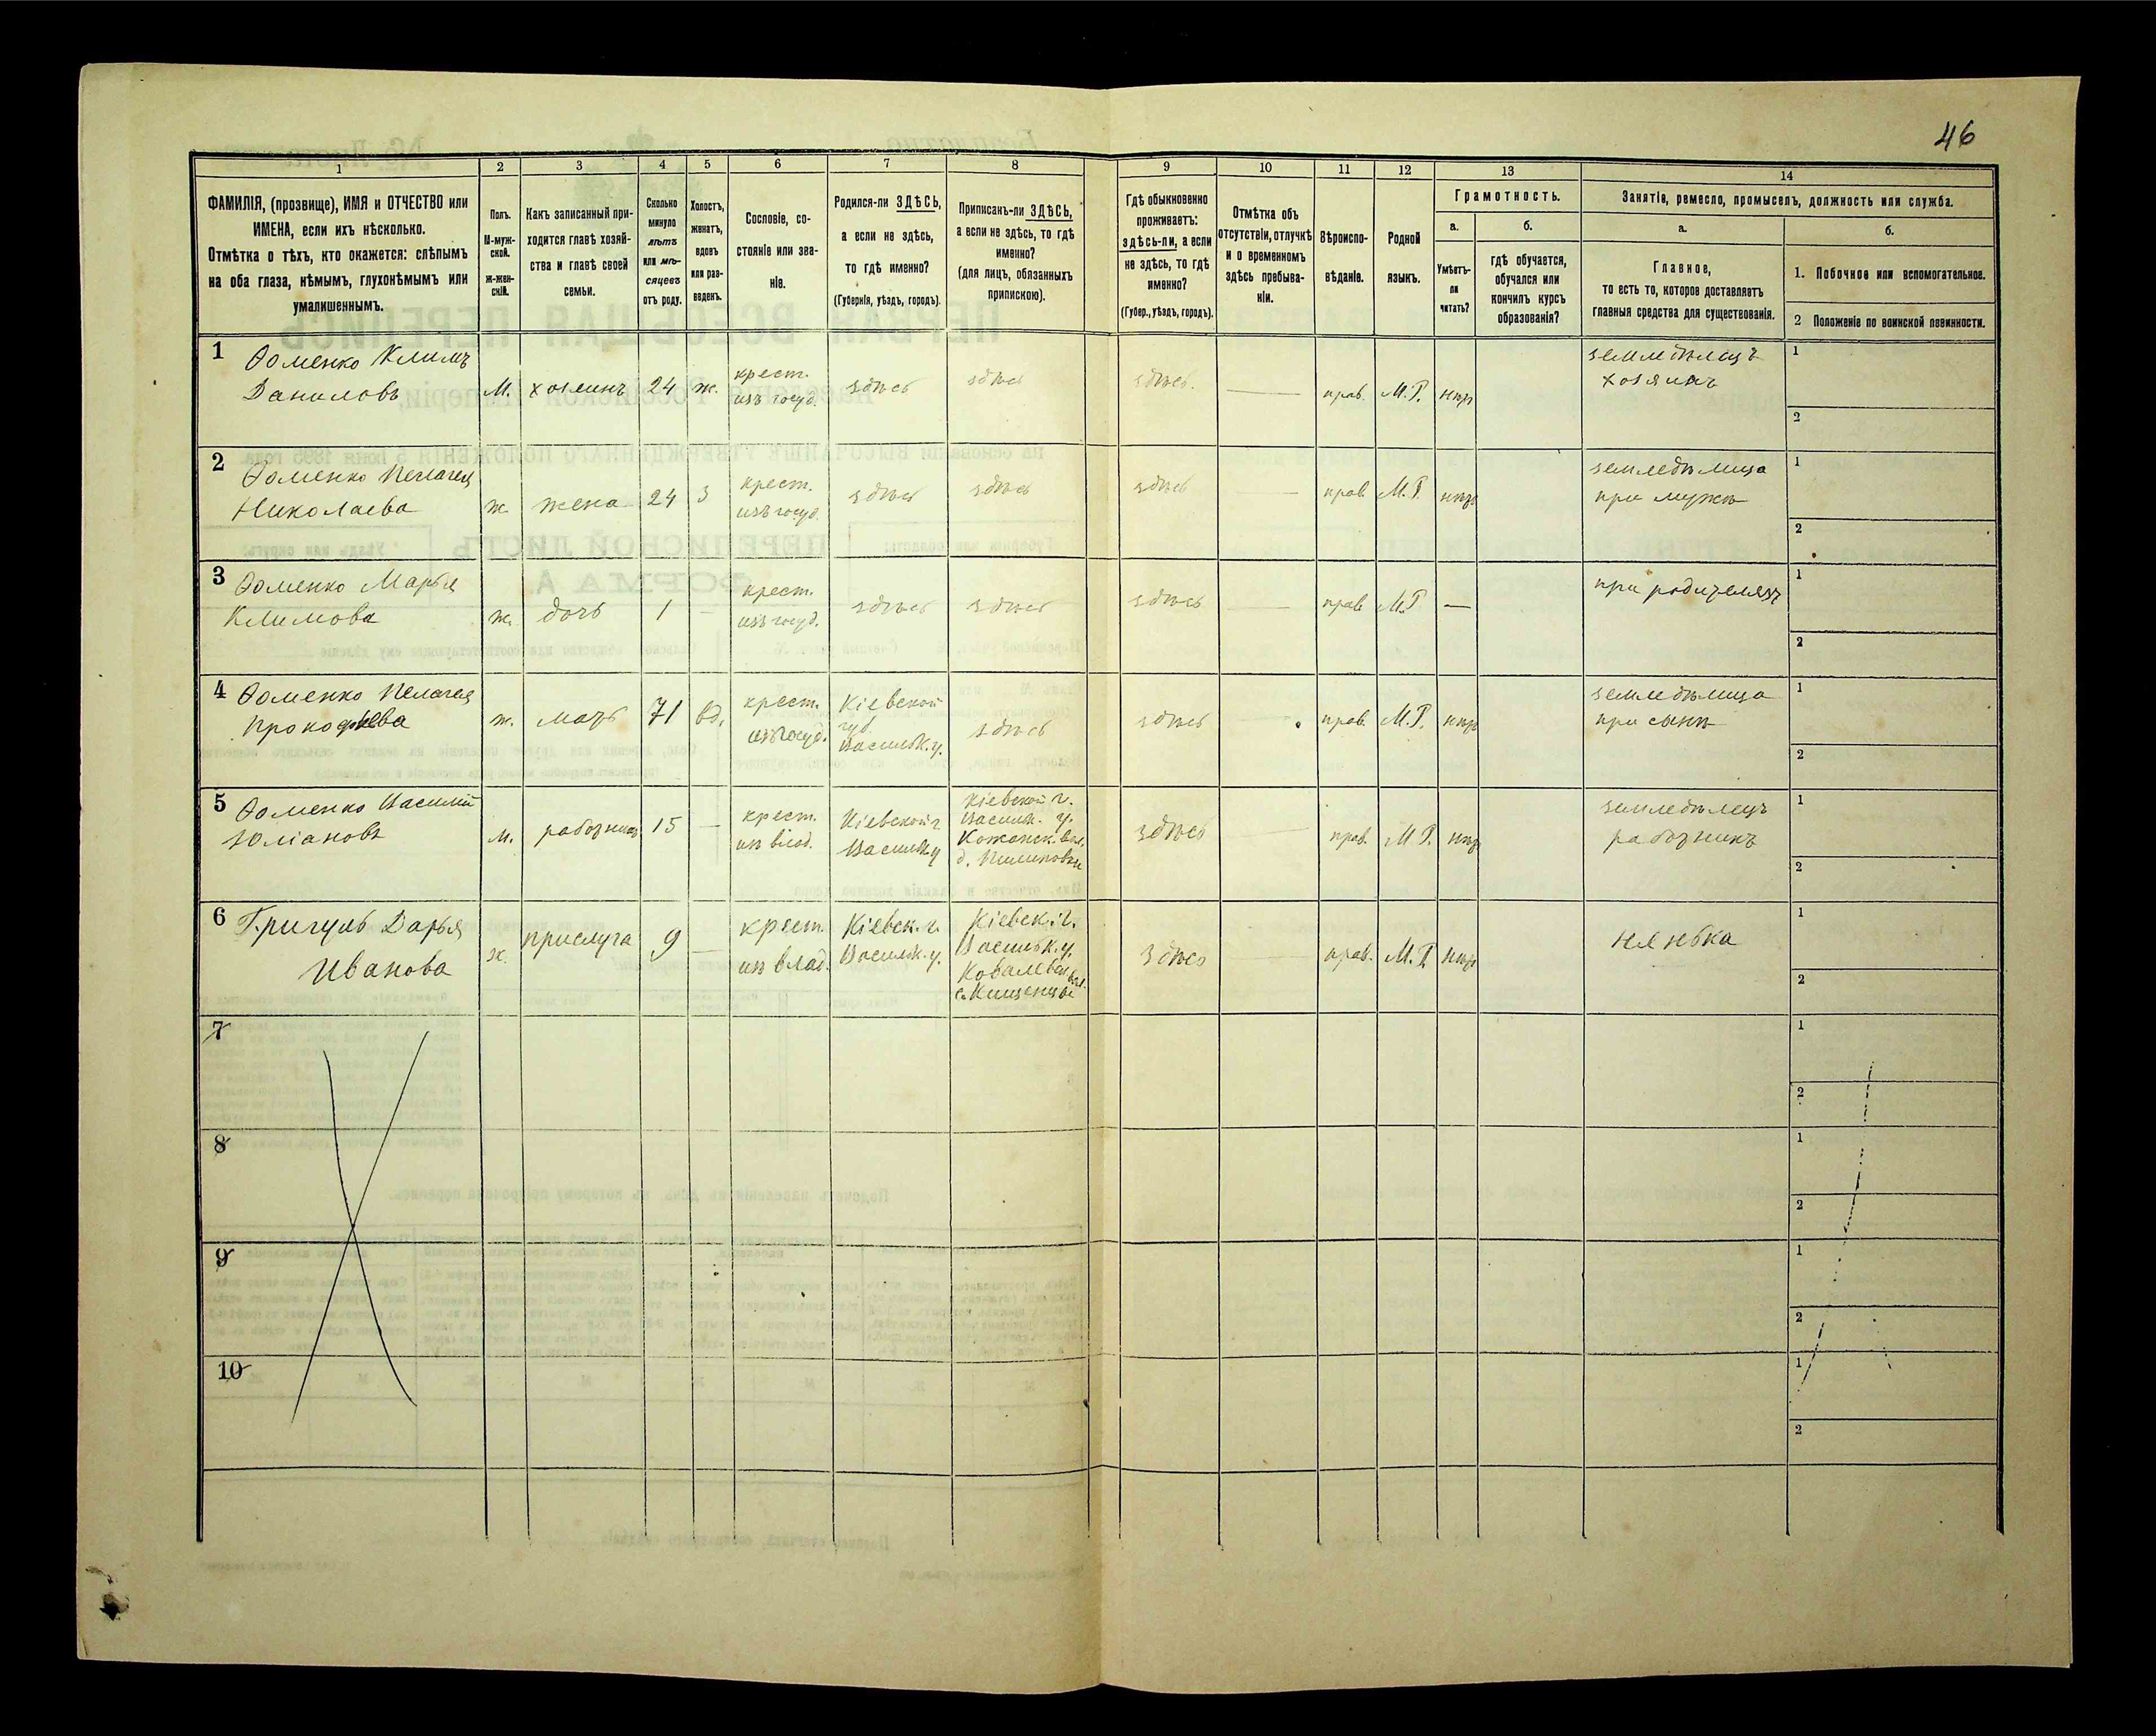 46
1 2 3 4 5 6 7 8 9 10 11 12 13 14
ФАМИЛІЯ, (прозвище), ИМЯ и ОТЧЕСТВО или
ИМЕНА, если ихъ нѣсколько.
Отмѣтка о тѣхъ, кто окажется: слѣпымъ
на оба глаза, нѣмымъ, глухонѣмымъ или
умалишеннымъ.
Полъ.
М-муж-
ской.
ж-жен-
скій.
Какъ записанный при-
ходится главѣ хозяй-
ства и главѣ своей
семьи.
Сколько
минуло
лѣтъ
или мѣ-
сяцевъ
отъ роду.
Холостъ,
женатъ,
вдовъ
или раз-
веденъ.
Сословіе, со-
стояніе или зва-
ніе.
Родился-ли ЗДѢСЬ,
а если не здѣсь,
то гдѣ именно?
(Губернія, уѣздъ, городъ).
Приписанъ-ли ЗДѢСЬ,
а если не здѣсь, то гдѣ
именно?
(для лицъ, обязанныхъ
припискою).
Гдѣ обыкновенно
проживаетъ:
здѣсь-ли, а если
не здѣсь, то гдѣ
именно?
(Губер., уѣздъ, городъ).
Отмѣтка объ
отсутствіи, отлучкѣ
и о временномъ
здѣсь пребыва-
ніи.
Вѣроиспо-
вѣданіе.
Родной
языкъ.
Грамотность.
а.
Умѣетъ-
ли
читать?
б.
гдѣ обучается,
обучался или
кончилъ курсъ
образованія?
Занятія, ремесло, промыселъ, должность или служба.
а.
Главное,
то есть то, которое доставляетъ
главныя средства для существованія.
б.
1. Побочное или вспомогательное.
2 Положеніе по воинской повинности.
1 Ѳоменко Климъ
Даниловъ
М.
хозяинъ
24
ж.
крест.
изъ госуд.
здѣсь
здѣсь
здѣсь.
прав.
М.Р.
нѣт
земледѣлецъ
хозяинъ
1
2
2 Ѳоменко Пелагея
Николаева
ж.
жена
24
З
крест.
изъ госуд.
здѣсь
здѣсь
здѣсь
прав.
М.Р.
нѣт
земледѣлица
при мужѣ
1
2
3 Ѳоменко Марья
Климова
ж.
дочь
1
—
крест.
изъ госуд.
здѣсь
здѣсь
здѣсь
прав.
М.Р
—
при родителяхъ
1
2
4 Ѳоменко Пелагея
Прокофьева
ж.
мать
71
вд.
крест.
изъ госуд.
Кіевской
губ.
Васильк. у.
здѣсь
здѣсь
прав.
М.Р.
нѣт
земледѣлица
при сынѣ
1
2
5 Ѳоменко Василій
Юліановъ
м.
работник
15
—
крест.
из влад.
Кіевской г
Васильк у
Кіевской г.
Васильк. у.
Кожанск. вол.
д. Пилиповки
здѣсь
прав.
М.Р.
нѣт
земледѣлецъ
работникъ
1
2
6 Григуль Дарья
Иванова
ж.
прислуга
9
—
крест.
из влад.
Кіевск. г.
Васильк. у.
Кіевск. г.
Васильк. у.
Ковалевск. вол.
с. Кищенцы
здѣсь
прав.
М.Р.
нѣт
нянька
1
2
7
1
2
8
1
2
9
1
2
10
1
2